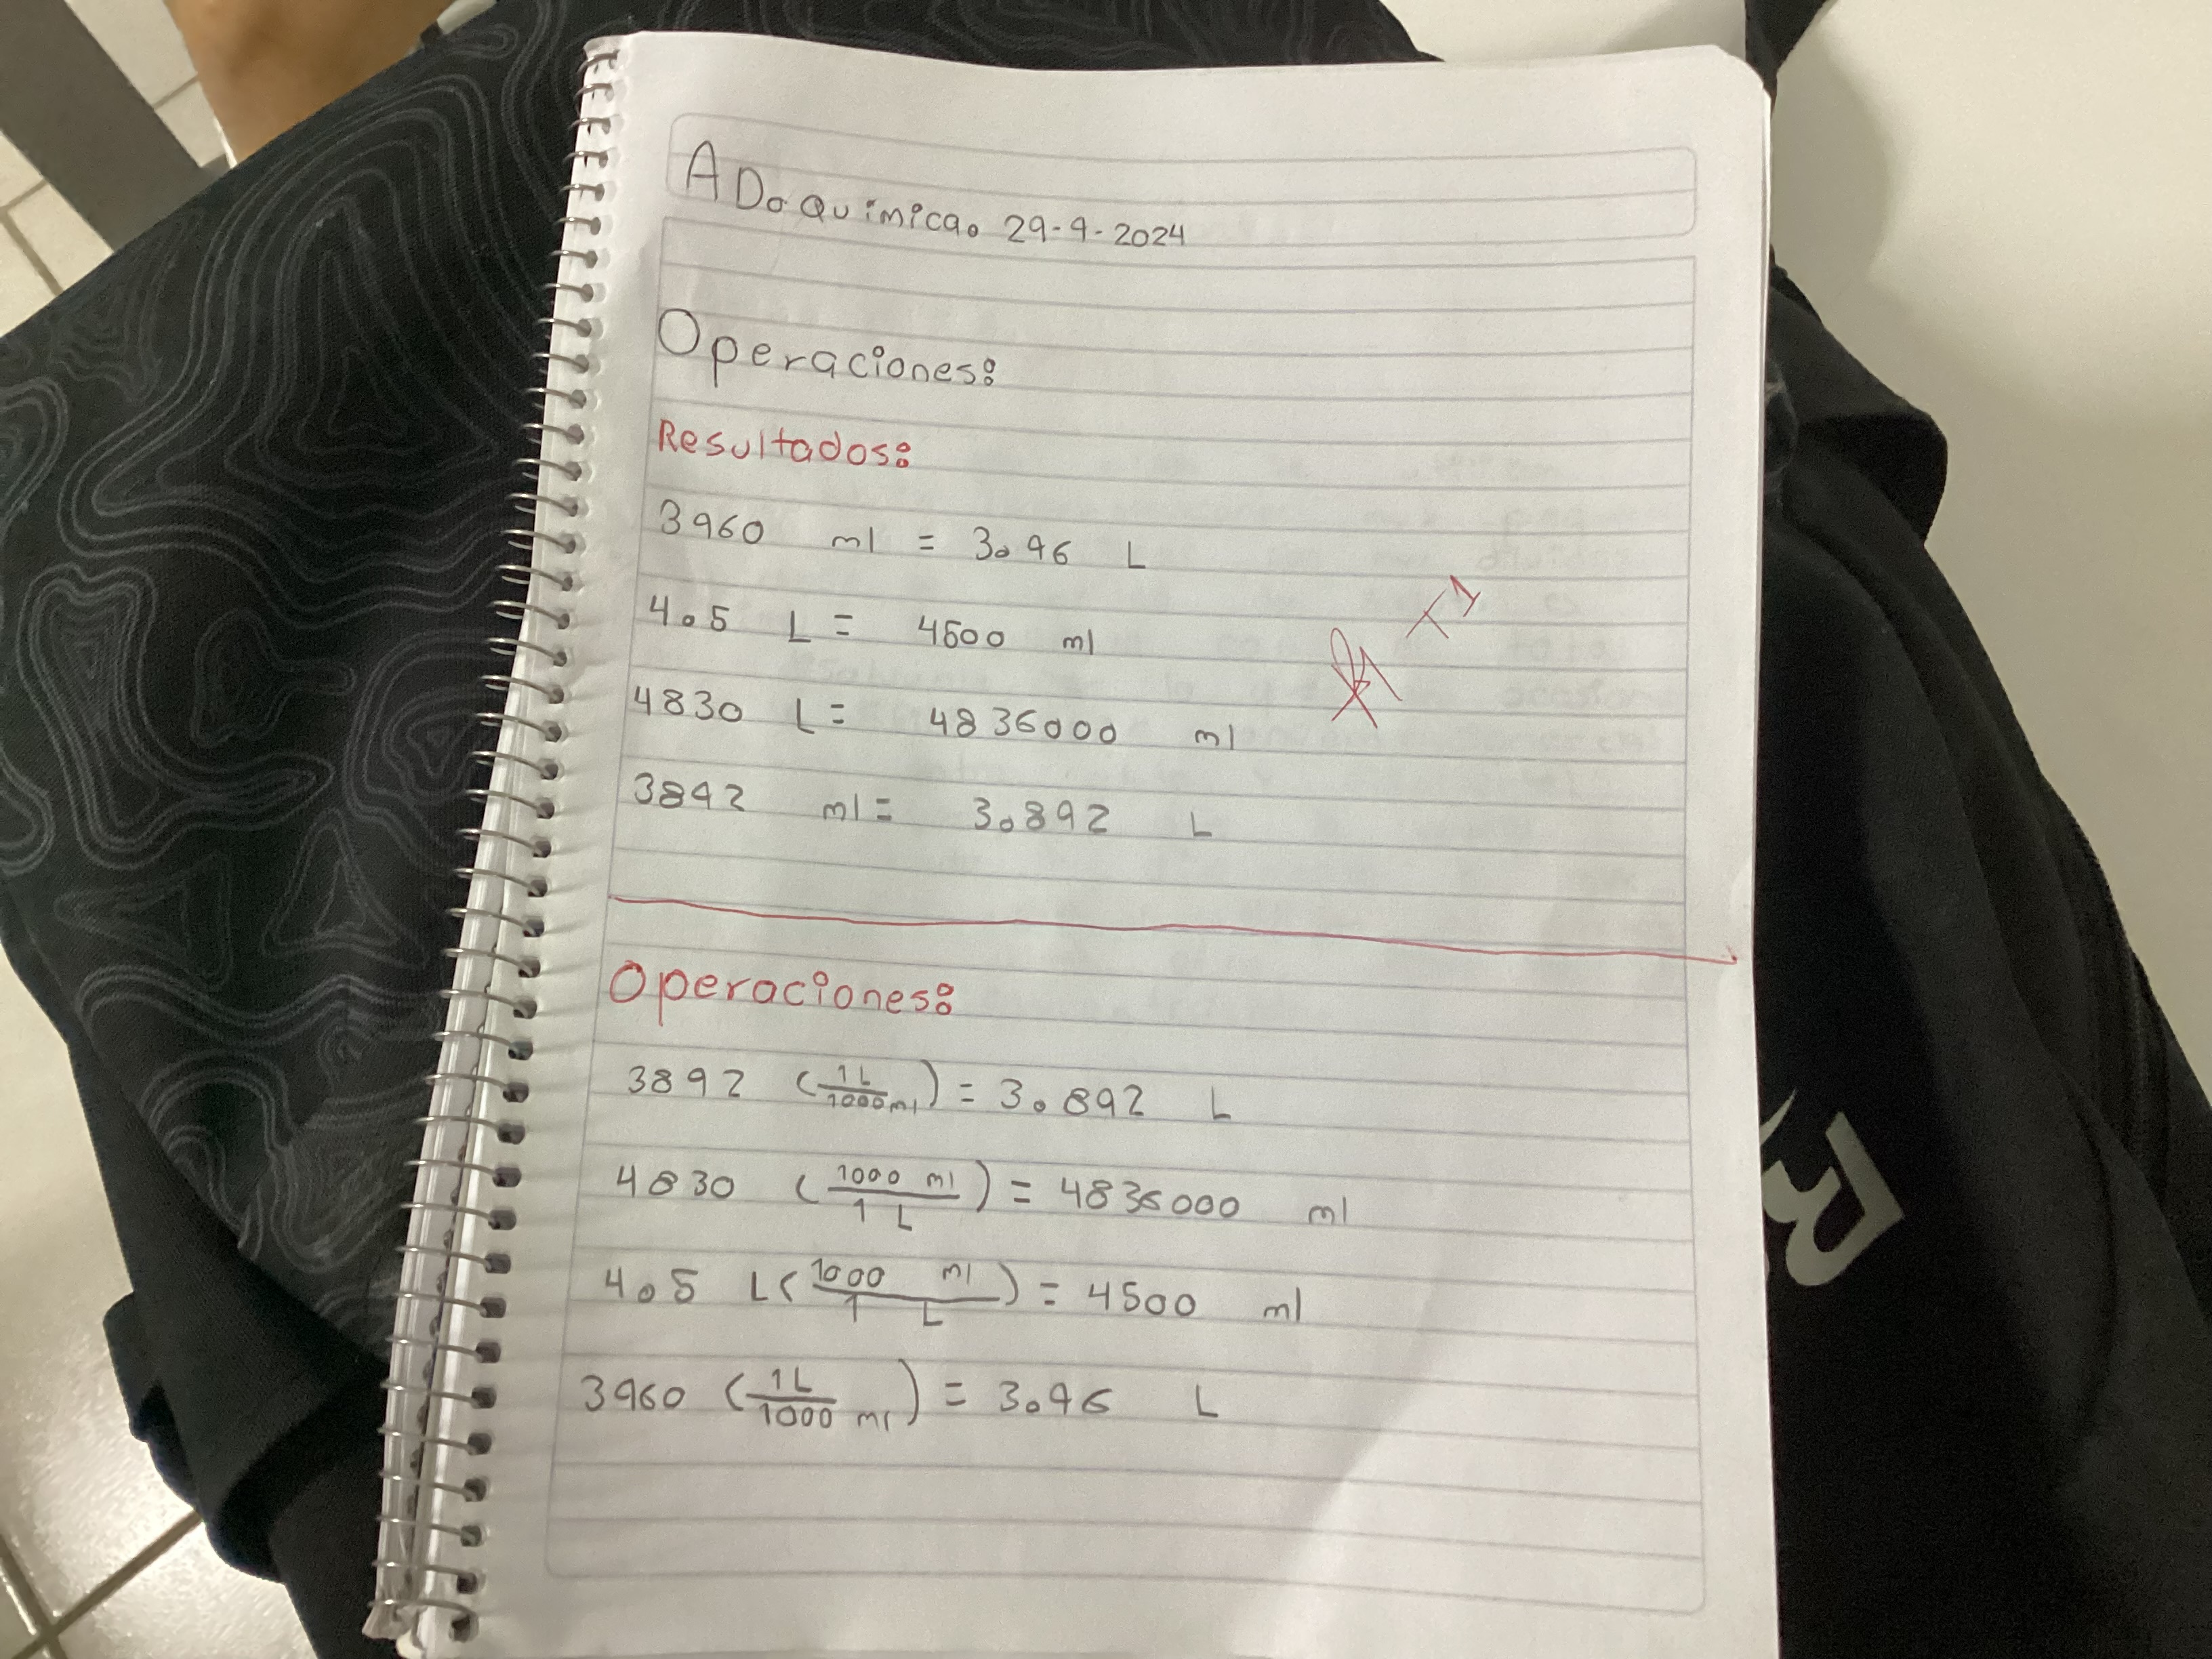 ADo Quimica. 29-9-2024
Operaciones:
Resultados:
3960 ml = 3.96 L
4.5 L = 4500 ml
4830 L = 4836000 ml
3892 ml = 3.892 L
Operaciones:
3892 (1L/1000ml) = 3.892 L
4830 (1000 ml/1 L) = 4836000 ml
4.5 L (1000 ml/1 L) = 4500 ml
3960 (1L/1000 ml) = 3.96 L